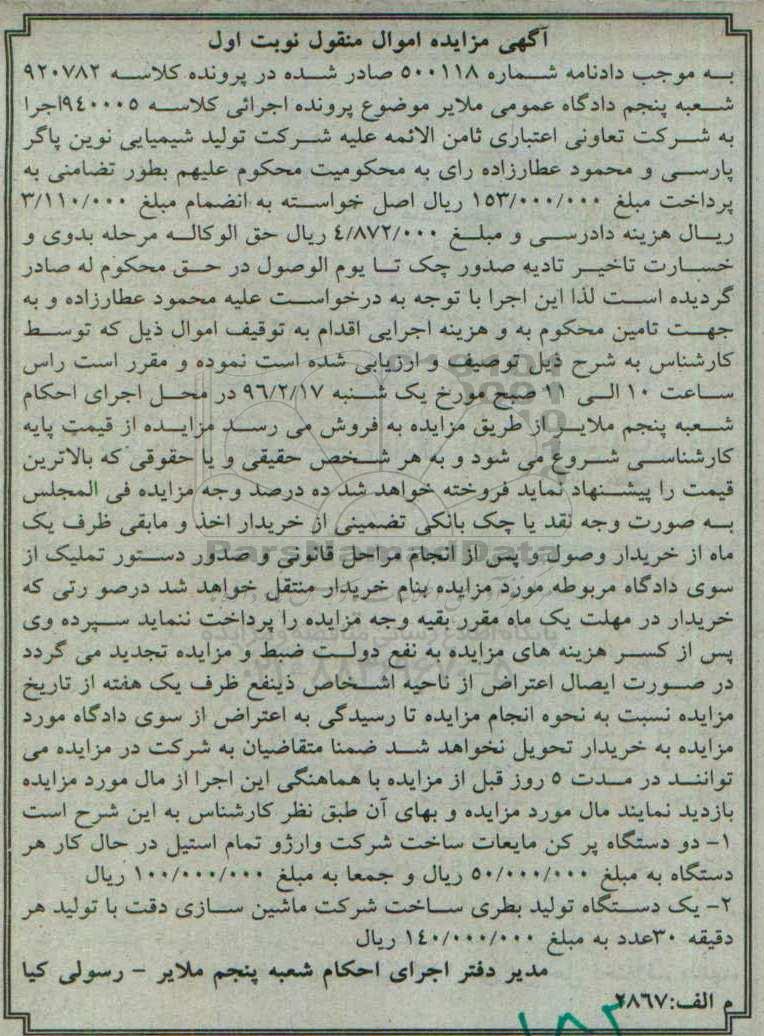 آگهی مزایده اموال منقول نوبت اول
به موجب دادنامه شماره ٥٠٠١١٨ صادر شده در پرونده کلاسه ٩٢٠٧٨٢
شعبه پنجم دادگاه عمومی ملایر موضوع پرونده اجرائی کلاسه ٩٤٠٠٠٥اجرا
به شرکت تعاونی اعتباری ثامن الائمه علیه شرکت تولید شیمیایی نوین پاگر
پارسی و محمود عطارزاده رای به محکومیت محکوم علیهم بطور تضامنی به
پرداخت مبلغ ١٥٣/٠٠٠/٠٠٠ ریال اصل خواسته به انضمام مبلغ ٣/١١٠/٠٠٠
ریال هزینه دادرسی و مبلغ ٤/٨٧٢/٠٠٠ ریال حق الوکاله مرحله بدوی و
خسارت تاخیر تادیه صدور چک تا یوم الوصول در حق محکوم له صادر
گردیده است لذا این اجرا با توجه به درخواست علیه محمود عطارزاده و به
جهت تامین محکوم به و هزینه اجرایی اقدام به توقیف اموال ذیل که توسط
کارشناس به شرح ذیل توصیف و ارزیابی شده است نموده و مقرر است راس
ساعت ١٠ الی ١١ صبح مورخ یک شنبه ٩٦/٢/١٧ در محل اجرای احکام
شعبه پنجم ملایر از طریق مزایده به فروش می رسد مزایده از قیمت پایه
کارشناسی شروع می شود و به هر شخص حقیقی و یا حقوقی که بالاترین
قیمت را پیشنهاد نماید فروخته خواهد شد ده درصد وجه مزایده فی المجلس
به صورت وجه نقد یا چک بانکی تضمینی از خریدار اخذ و مابقی ظرف یک
ماه از خریدار وصول و پس از انجام مراحل قانونی و صدور دستور تملیک از
سوی دادگاه مربوطه مورد مزایده بنام خریدار منتقل خواهد شد درصو رتی که
خریدار در مهلت یک ماه مقرر بقیه وجه مزایده را پرداخت ننماید سپرده وی
پس از کسر هزینه های مزایده به نفع دولت ضبط و مزایده تجدید می گردد
در صورت ایصال اعتراض از ناحیه اشخاص ذینفع ظرف یک هفته از تاریخ
مزایده نسبت به نحوه انجام مزایده تا رسیدگی به اعتراض از سوی دادگاه مورد
مزایده به خریدار تحویل نخواهد شد ضمنا متقاضیان به شرکت در مزایده می
توانند در مدت ٥ روز قبل از مزایده با هماهنگی این اجرا از مال مورد مزایده
بازدید نمایند مال مورد مزایده و بهای آن طبق نظر کارشناس به این شرح است
١- دو دستگاه پر کن مایعات ساخت شرکت وارژو تمام استیل در حال کار هر
دستگاه به مبلغ ٥٠/٠٠٠/٠٠٠ ریال و جمعا به مبلغ ١٠٠/٠٠٠/٠٠٠ ریال
٢- یک دستگاه تولید بطری ساخت شرکت ماشین سازی دقت با تولید هر
دقیقه ٣٠عدد به مبلغ ١٤٠/٠٠٠/٠٠٠ ریال
مدیر دفتر اجرای احکام شعبه پنجم ملایر - رسولی کیا
م الف:٢٨٦٧
ParsNamadData